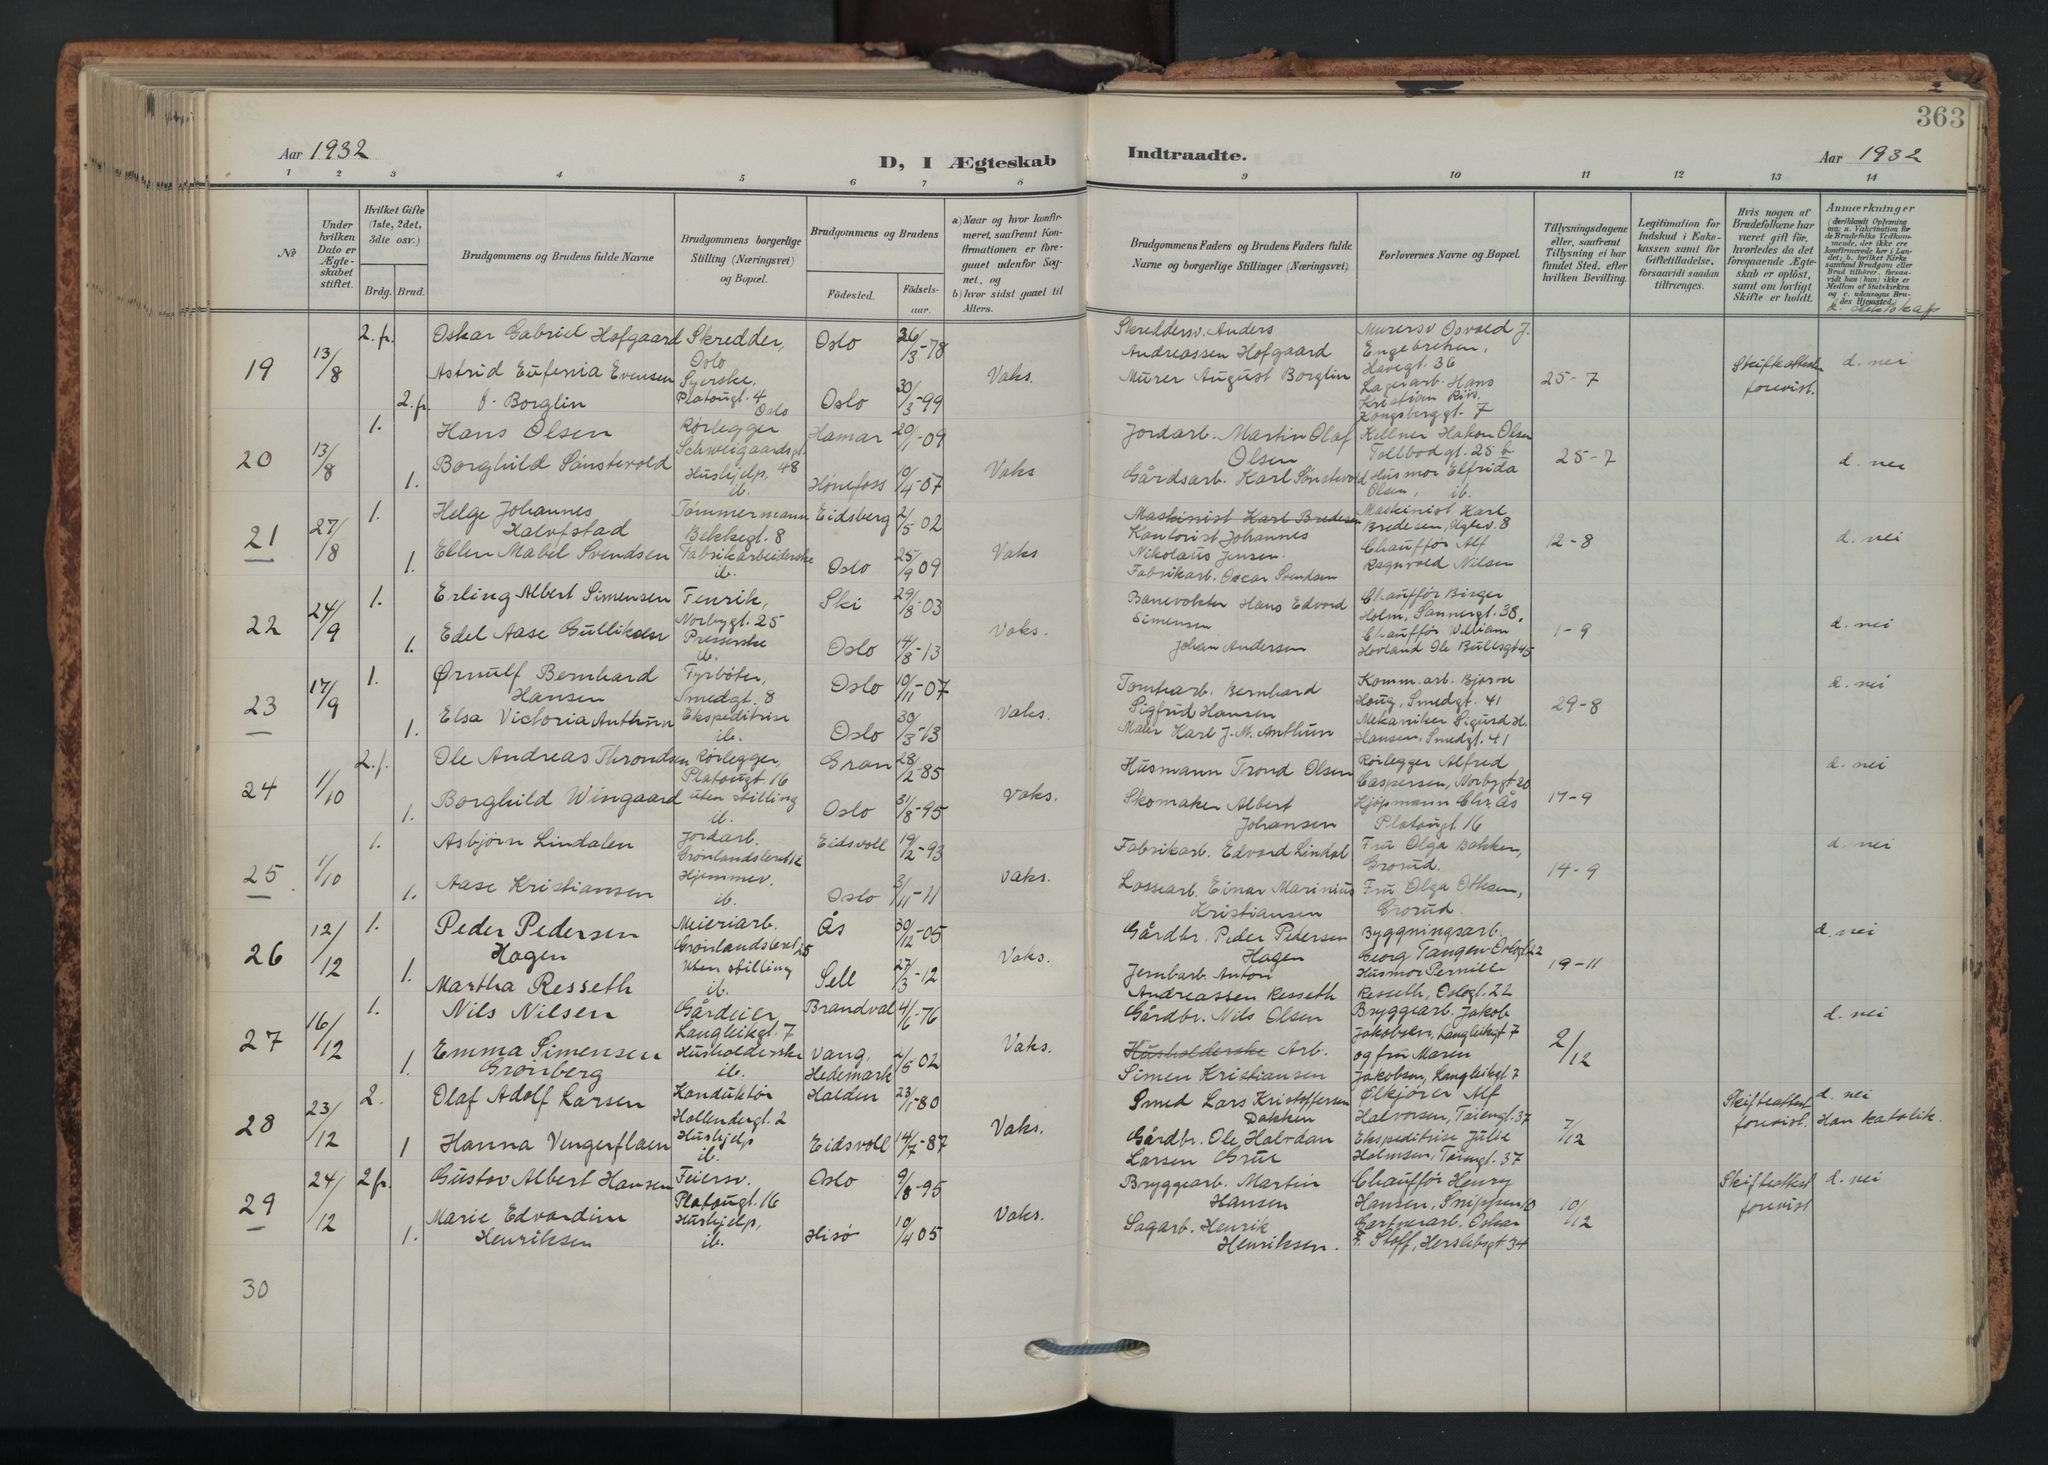 363
Aar 1932
D, I Ægteskab
Indtraadte.
Aar 1932
1 2 3 4 5 6 7 8 9 10 11 12 13 14
No
Under hvilken Dato er Ægteskabet stiftet.
Hvilket Gifte (1ste, 2det, 3dte osv.)
Brdg. Brud.
Brudgommens og Brudens fulde Navne
Brudgommens borgerlige Stilling (Næringsvei) og Bopæl.
Brudgommens og Brudens
Fødested. Fødselsaar.
a) Naar og hvor konfirmeret, saafremt Konfirmationen er foregaaet udenfor Sognet, og
b) hvor sidst gaaet til Alters.
Brudgommens Faders og Brudens Faders fulde Navne og borgerlige Stillinger (Næringsvei)
Forlovernes Navne og Bopæl.
Tillysningsdagene eller, saafremt Tillysning ei har fundet Sted, efter hvilken Bevilling.
Legitimation for Indskud i Enkekassen samt for Giftetilladelse, forsaavidt saadan tiltrænges.
Hvis nogen af Brudefolkene har været gift før, hvorledes da det foregaaende Ægteskab er opløst, samt om lovligt Skifte er holdt.
Anmærkninger
19 13/8 2. fr. Oskar Gabriel Hofgaard Skredder, Oslo Oslo 26/3-78
2. fr. Astrid Eufenia Evensen f. Borglin Syerske, Platougt. 4 Oslo Oslo 30/3-99 Vaks.
Skreddersv. Anders Andreassen Hofgaard
Murer August Borglin
Murersv Osvald J. Engebretsen, Havegt. 36
Lagerarb. Hans Kristian Kongsberggt. 7
25-7
Skifteattest forevist.
d. nei
20 13/8 1. Hans Olsen Rørlegger Schweigaardsgt. 48 Hamar 20/1-09
1. Borghild Sønstevold Hushjelp, ib. Hønefoss 10/4-07 Vaks
Jordarb. Martin Olaf Olsen
Gårdsarb. Karl Sønstevold
Kellner Hakon Olsen Tollbodgt. 25 b
Husmor Elfrida Olsen, ib.
25-7
d. nei
21 27/8 1. Helge Johannes Halvfstad Tømmermann Bekkegt. 8 Eidsberg 2/5 02
1. Ellen Mabel Svendsen Fabrikarbeiderske ib. Oslo 25/9 09 Vaks
Maskinist Karl Bredesen
Kontorist Johannes Nikolaus Jensen.
Fabrikarb. Oscar Svendsen
Maskinist Karl Bredesen, 8
Chauffør Alf Ragnvald Nilsen
12-8
d. nei
22 24/9 1. Erling Albert Simensen Fenrik, Norbygt. 25 Ski 29/8-03
1. Edel Aase Gulliksen Presserske ib. Oslo 14/8-13 Vaks.
Banevokter Hans Edvard Simensen
Johan Andersen
Chauffør Birger Holm, Sannergt. 38,
Chauffør William Hovland Ole Bullsgt 45
1-9
d. nei
23 17/9 1. Ørnulf Bernhard Hansen Fyrbøter, Smedgt. 8 Oslo 10/11-07
1. Elsa Victoria Anthun Ekspeditrise ib. Oslo 30/3-13 Vaks.
Tomtearb. Bernhard Sigfrid Hansen
Maler Karl J. M. Anthun
Komm. arb. Bjarne Houg, Smedgt. 41
Mekaniker Sigurd H. Hansen, Smedgt. 41
29-8
d. nei
24 1/10 2. f. Ole Andreas Throndsen Rørlegger, Platougt. 16 Gran 28/2-85
1. Borghild Wingaard uten stilling ib. Oslo 31/8-95 Vaks.
Husmann Trond Olsen
Skomaker Albert Johansen
Rørlegger Alfred Caspersen, Norbygt 20
Kjøpmann Chr. Ås Platougt 16
17-9
d. nei
25 1/10 1. Asbjørn Lindalen Jordarb. Grønlandsleret 12 Eidsvoll 19/2-93
1. Aase Kristiansen Hjemmev. ib. Oslo 3/11-11 Vaks.
Fabrikarb. Edvard Lindal
Lossearb. Einar Marinius Kristiansen
Fru Olga Bakken, Grorud.
Fru Olga Ottesen, Grorud.
14-9
d. nei
26 12/12 1. Peder Pedersen Hagen Meieriarb. Grønlandsleret 25 Ås 30/12-05
1. Martha Resseth Uten stilling ib. Sell 27/3-12 Vaks.
Gårdbr. Peder Pedersen Hagen
Jernbarb. Anton Andreassen Resseth
Byggningsarb. Georg Tangen Oslogt 22
Husmor Pernille Resseth, Oslogt. 22
19-11
d. nei
27 16/12 1. Nils Nilsen Gårdeier, Langleikgt. 7 Brandval 4/6-76
1. Emma Simensen Grønberg Husholderske ib. Vang, Hedemark 2/5 02 Vaks.
Gårdbr. Nils Olsen
Husholderske Arb. Simen Kristiansen
Bryggearb. Jakob Jakobsen, Langleikgt 7
og fru Maren Jakobsen, Langleikgt. 7
2/12
d. nei
28 23/12 2. Olaf Adolf Larsen Konduktør Hollendergt. 2 Halden 23/1-80
1 Hanna Vengerflaen Hushjelp ib. Eidsvoll 14/7-87 Vaks.
Smed Lars Kristoffersen Dakken
Gårdbr. Ole Halvdan Larsen Grue
Ølkjører Alf Halvorsen, Tøiengt. 37
Ekspeditrise Julie Holmsen, Tøiengt. 37
7/12
Skifteattest forevist.
d. nei Han katolik.
29 24/12 2 fr. Gustav Albert Hansen Feiersv. Platougt 16 Oslo 9/8-95
1. Marie Edvardine Henriksen Hushjelp, ib. Hisø 10/4 05 Vaks.
Bryggearb. Martin Hansen
Sagarb. Henrik Henriksen.
Chauffør Henry Hansen, Snippen 10
Gartnerarb. Oskar F. Stoff, Herslebsgt 34
10/12
Skifteattest forevist
d. nei
30